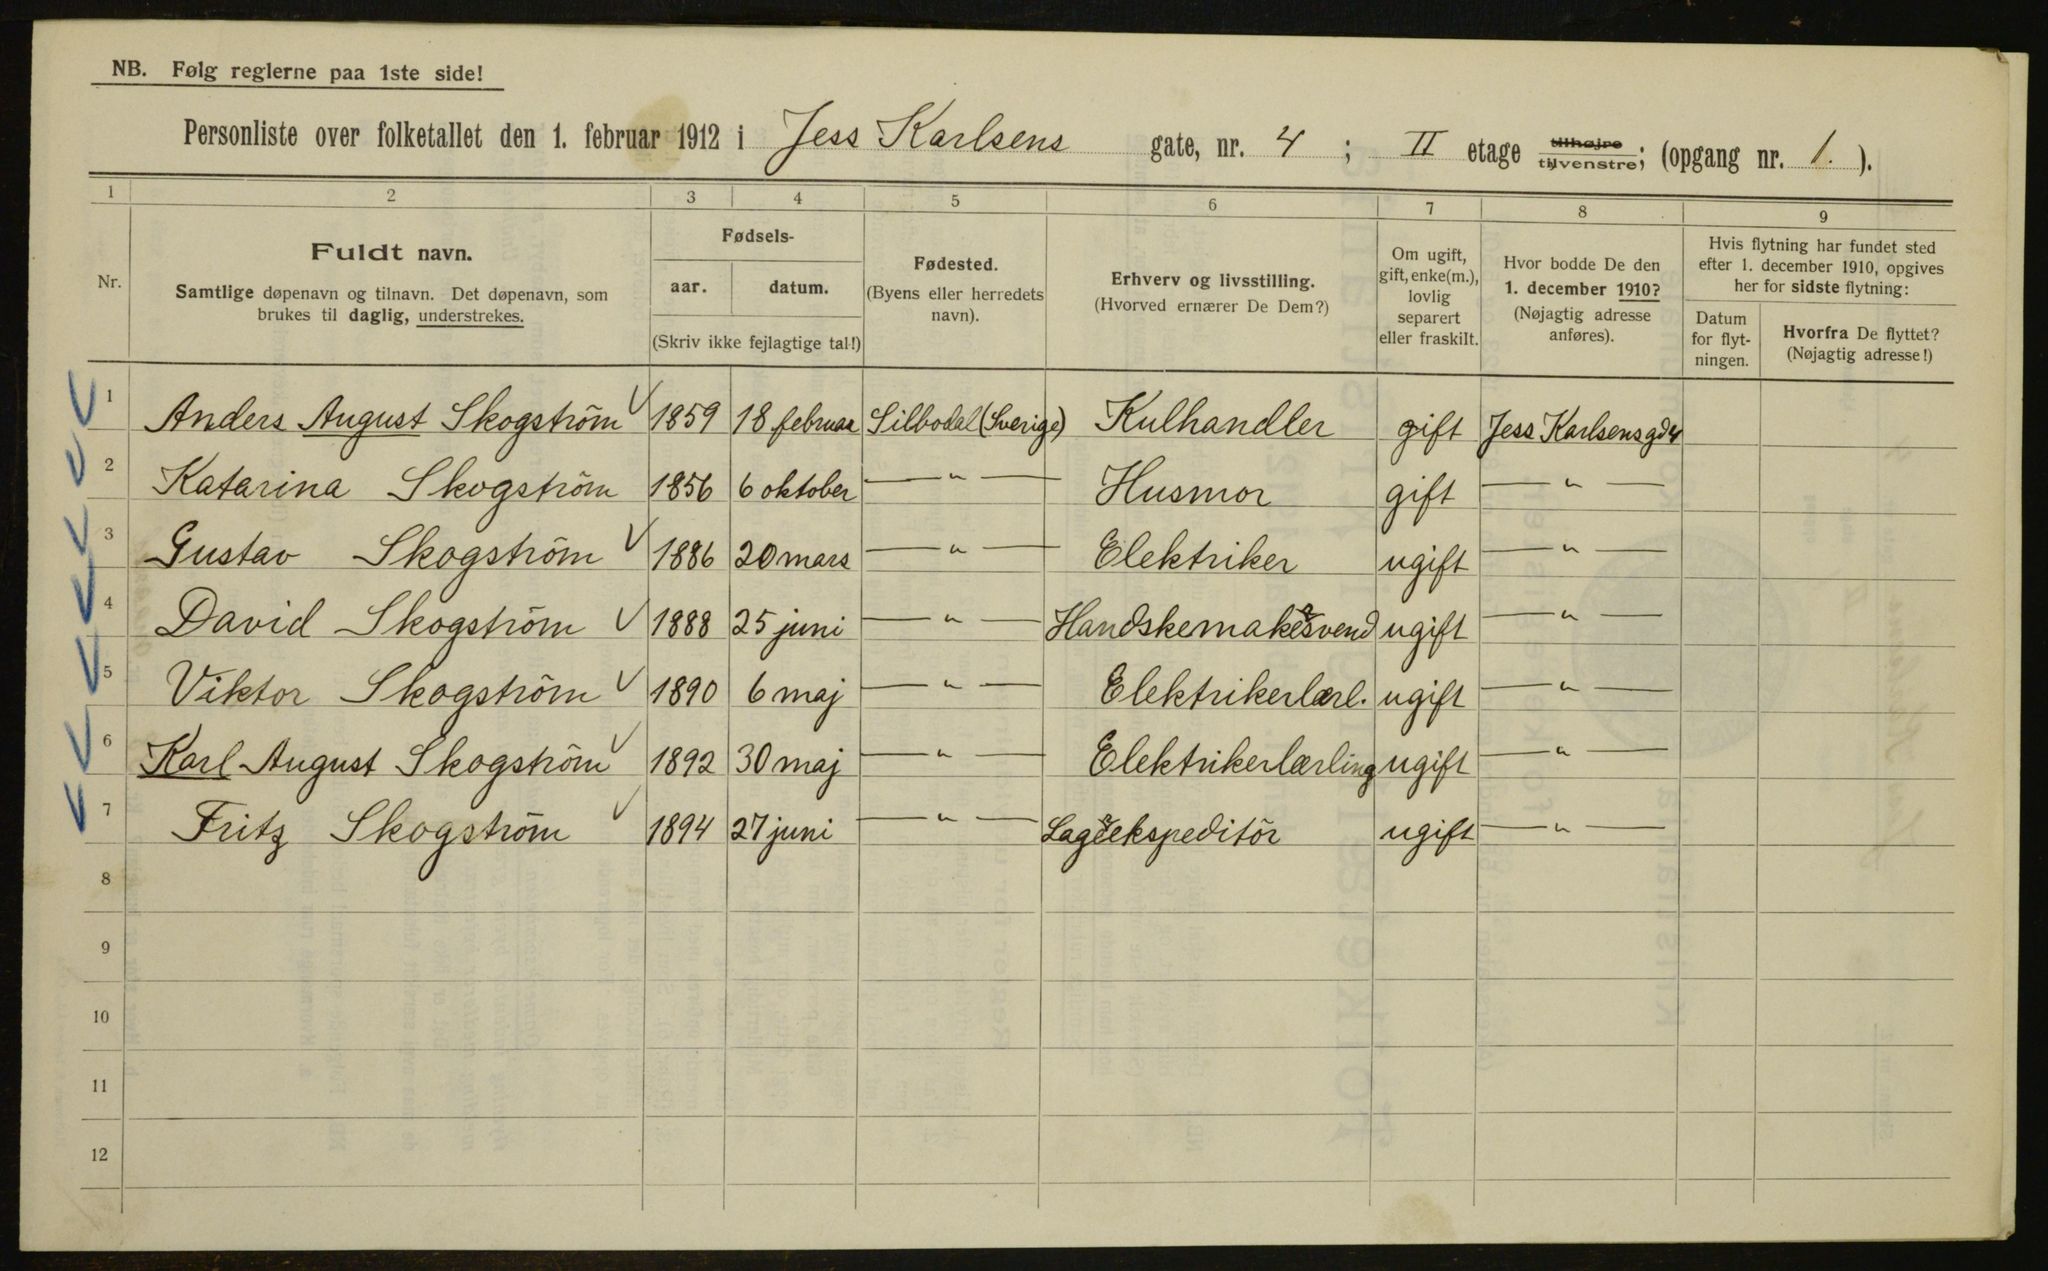 NB. Følg reglerne paa 1ste side!
Personliste over folketallet den 1. februar 1912 i Jess Karlsens gate, nr. 4 ; II etage tilhøjre tilvenstre; (opgang nr. 1. ).
1 2 3 4 5 6 7 8 9
Nr.
Fuldt navn.
Samtlige døpenavn og tilnavn. Det døpenavn, som
brukes til daglig, understrekes.
Fødsels-
aar. datum.
(Skriv ikke fejlagtige tal!)
Fødested.
(Byens eller herredets
navn).
Erhverv og livsstilling.
(Hvorved ernærer De Dem?)
Om ugift,
gift, enke(m.),
lovlig
separert
eller fraskilt.
Hvor bodde De den
1. december 1910?
(Nøjagtig adresse
anføres).
Hvis flytning har fundet sted
efter 1. december 1910, opgives
her for sidste flytning:
Datum
for flyt-
ningen.
Hvorfra De flyttet?
(Nøjagtig adresse!)
1 Anders August Skogström 1859 18 februar Silbodal (Sverige) Kulhandler gift Jess Karlsensgd 4
2 Katarina Skogström 1856 6 oktober — " — Husmor gift — " —
3 Gustav Skogström 1886 20 mars — " — Elektriker ugift — " —
4 David Skogström 1888 25 juni — " — Handskemakersvend ugift — " —
5 Viktor Skogström 1890 6 maj — " — Elektrikerlærl. ugift — " —
6 Karl August Skogström 1892 30 maj — " — Elektrikerlærling ugift — " —
7 Fritz Skogström 1894 27 juni — " — Lagerekspeditör ugift — " —
8
9
10
11
12